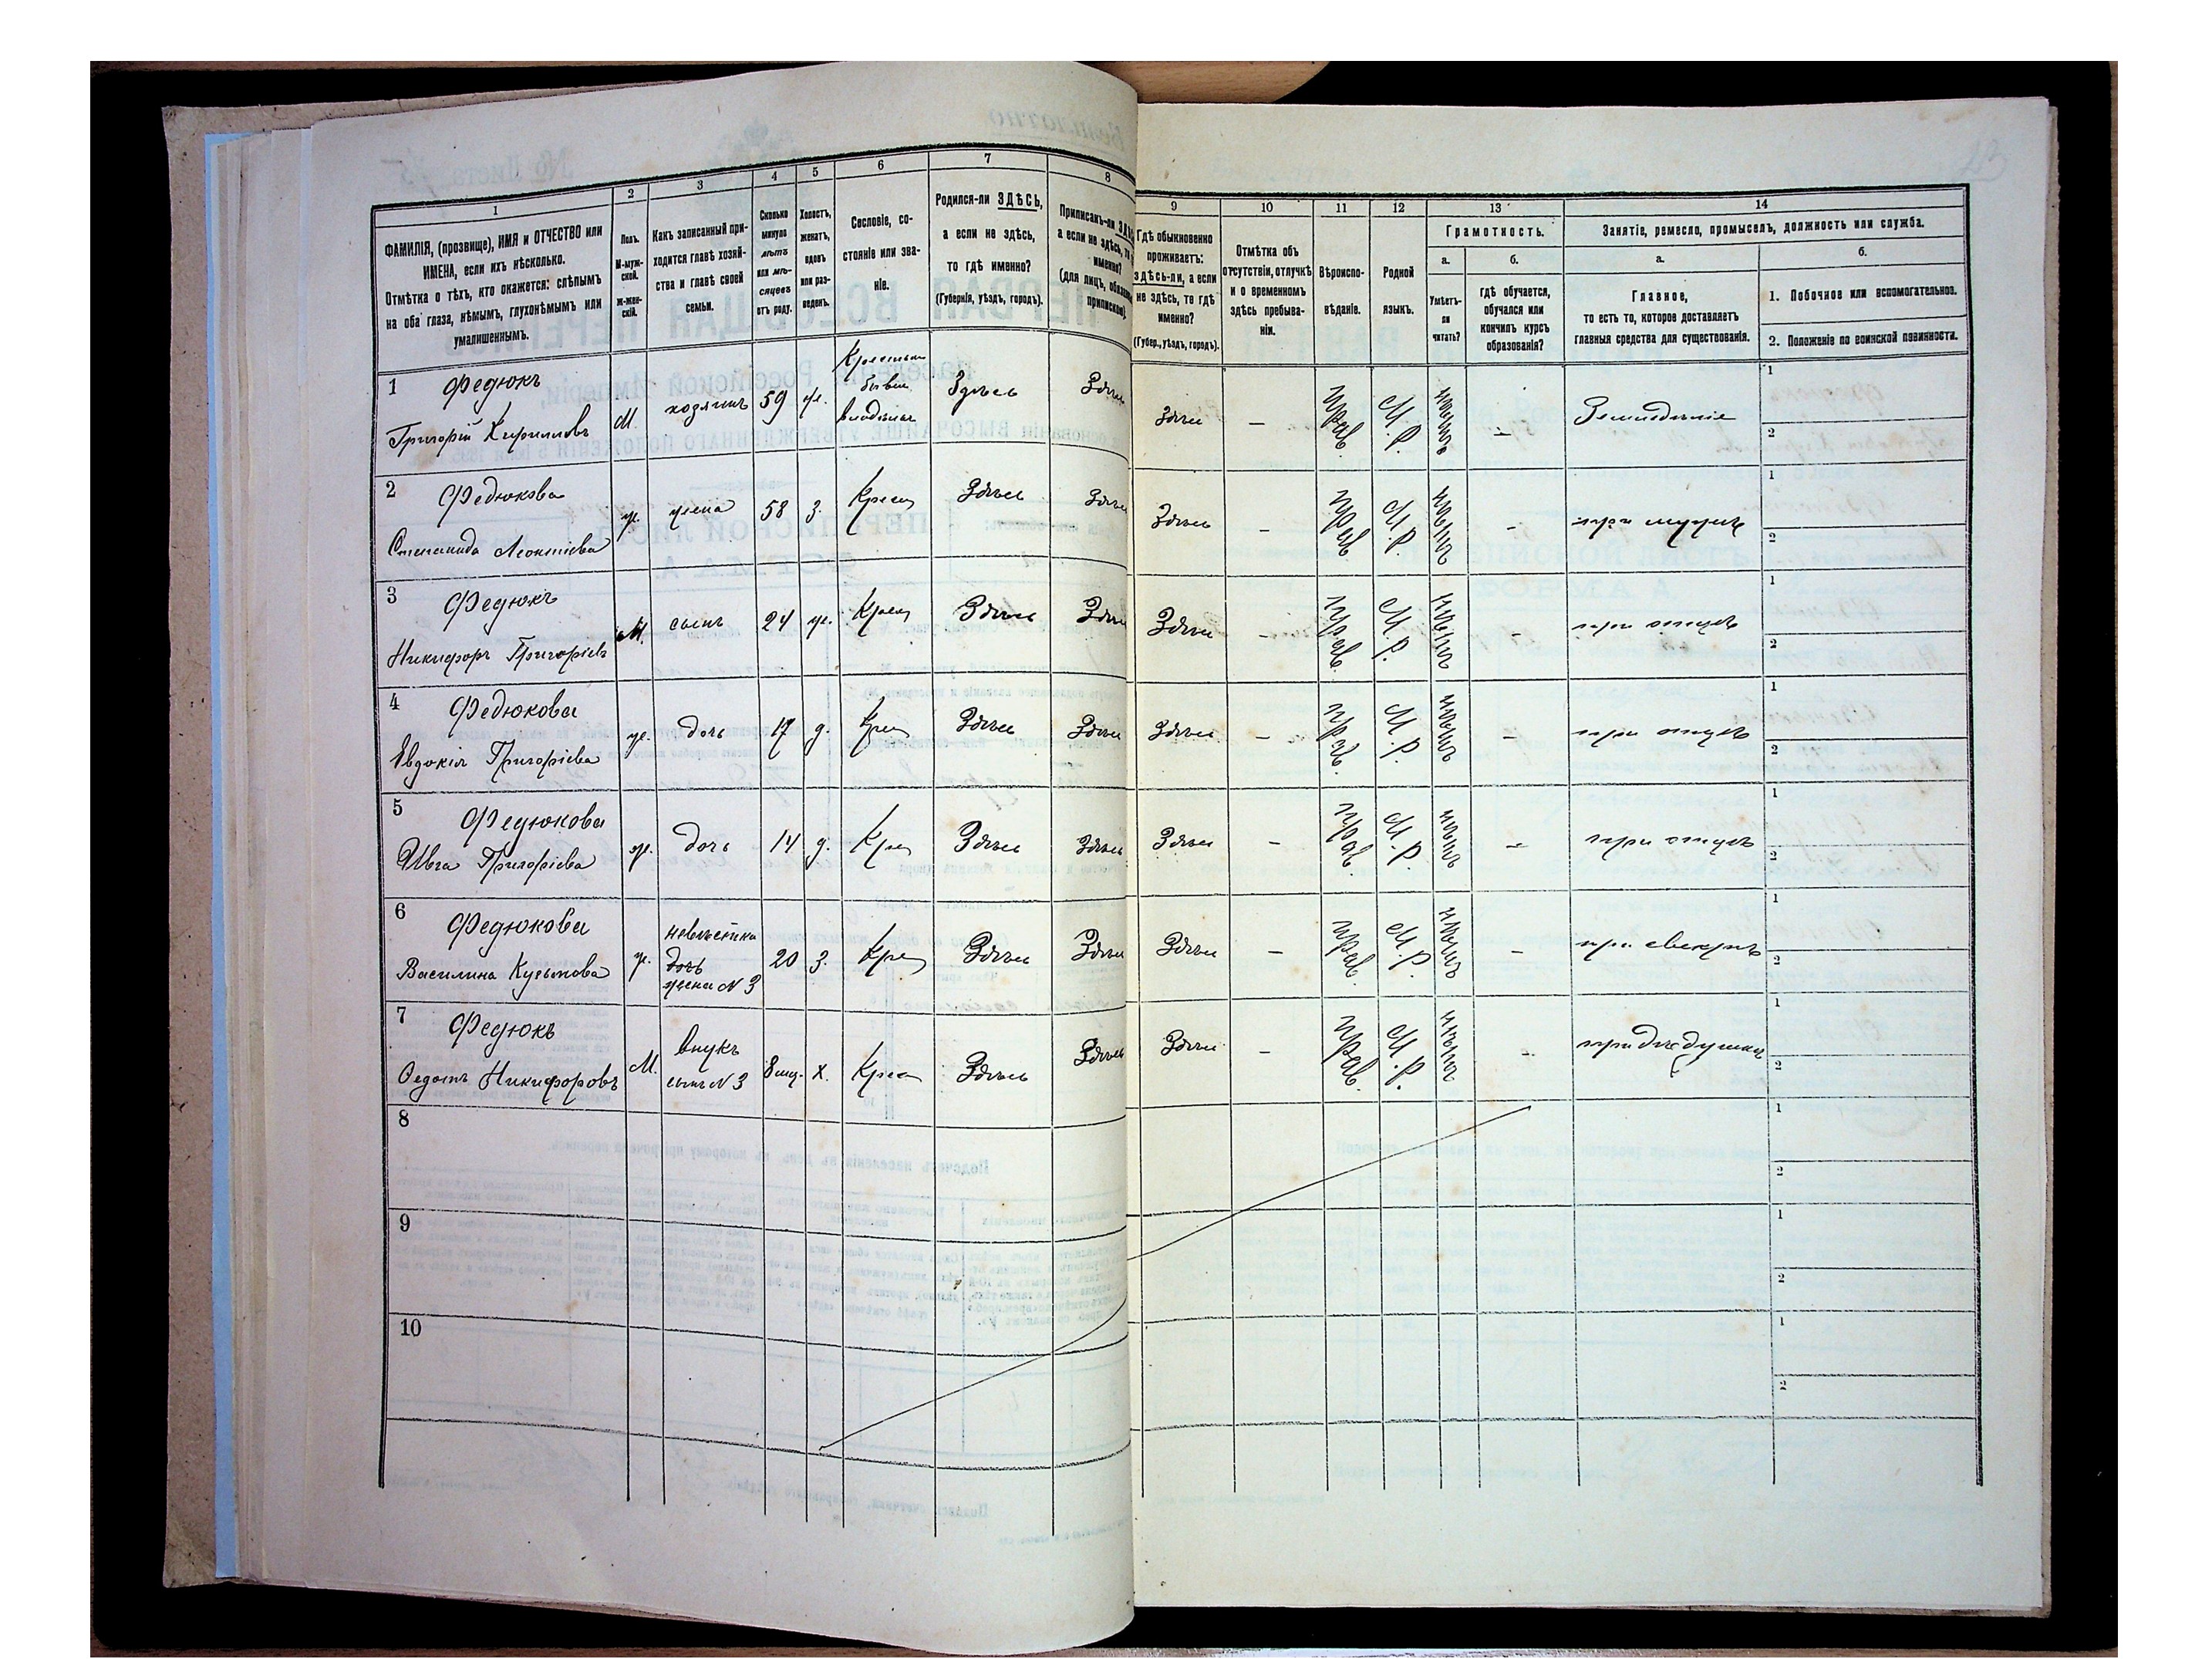 1 2 3 4 5 6 7 8 9 10 11 12 13 14
ФАМИЛІЯ, (прозвище), ИМЯ и ОТЧЕСТВО или
ИМЕНА, если ихъ нѣсколько.
Отмѣтка о тѣхъ, кто окажется: слѣпымъ
на оба глаза, нѣмымъ, глухонѣмымъ или
умалишеннымъ.
Полъ.
М-муж-
ской.
ж-жен-
скій.
Какъ записанный при-
ходится главѣ хозяй-
ства и главѣ своей
семьи.
Сколько
минуло
лѣтъ
или мѣ-
сяцевъ
отъ роду.
Холостъ,
женатъ,
вдовъ
или раз-
веденъ.
Сословіе, со-
стояніе или зва-
ніе.
Родился-ли ЗДѢСЬ,
а если не здѣсь,
то гдѣ именно?
(Губернія, уѣздъ, городъ).
Приписанъ-ли
а если не здѣсь, то
именно?
(для лицъ,
припискою).
Гдѣ обыкновенно
проживаетъ:
здѣсь-ли, а если
не здѣсь, то гдѣ
именно?
(Губер., уѣздъ, городъ).
Отмѣтка объ
отсутствіи, отлучкѣ
и о временномъ
здѣсь пребыва-
ніи.
Вѣроиспо-
вѣданіе.
Родной
языкъ.
Грамотность.
а.
Умѣетъ-
ли
читать?
б.
гдѣ обучается,
обучался или
кончилъ курсъ
образованія?
Занятіе, ремесло, промыселъ, должность или служба.
а.
Главное,
то есть то, которое доставляетъ
главныя средства для существованія.
б.
1. Побочное или вспомогательное.
2. Положеніе по воинской повинности.
1 Федюкъ
Григорій Кириловъ М. хозяинъ 59 ж. Здѣсь Здѣсь Здѣсь — прав. М.Р. нѣтъ — Земледѣліе 1 2
2 Федюкова
Степанида Леонтіева ж. жена 58 З. Крест Здѣсь Здѣсь Здѣсь — прав М.Р. нѣтъ — при мужѣ 1 2
3 Федюкъ
Никифоръ Григоріевъ М. сынъ 24 ж. Крест Здѣсь Здѣсь Здѣсь — прав. М.Р. нѣтъ — при отцѣ 1 2
4 Федюкова
Евдокія Григоріева ж. дочь 17 д. Крест Здѣсь Здѣсь Здѣсь — прав. М.Р. нѣтъ — при отцѣ 1 2
5 Федюкова
Ивга Григоріева ж. дочь 14 д. Крес Здѣсь Здѣсь Здѣсь — прав. М.Р. нѣтъ — при отцѣ 1 2
6 Федюкова
Василина Кузьмова ж. невѣстка
дочь
жена N 3 20 З. Крес Здѣсь Здѣсь Здѣсь — прав. М.Р. нѣтъ — при свекрѣ 1 2
7 Федюкъ
Федотъ Никифоровъ М. внукъ
сынъ N 3 8 мц. х. Крест Здѣсь Здѣсь Здѣсь — прав. М.Р. нѣтъ — при дѣдушкѣ 1 2
8 1 2
9 1 2
10 1 2